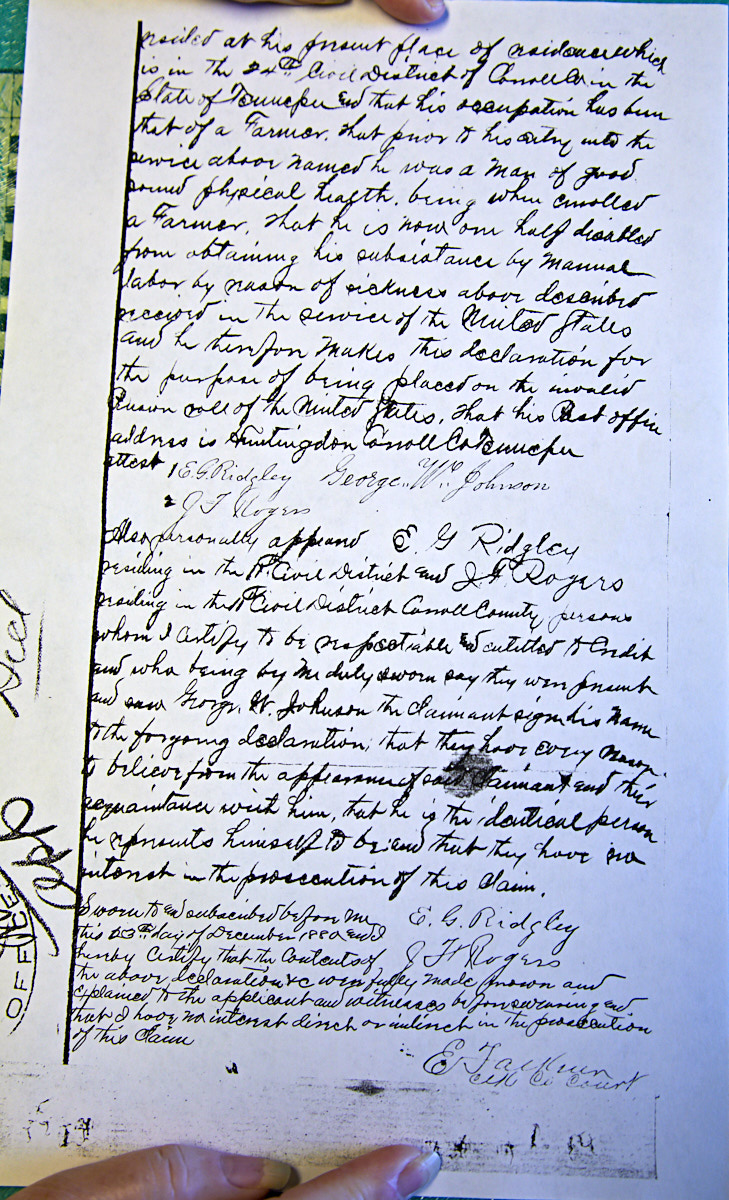 resided at his present place of residence which
is in the 24th Civil District of Carroll Co in the
State of Tennessee and that his occupation has been
that of a Farmer. That prior to his entry into the
service above named he was a man of good
sound physical health, being when enrolled
a Farmer. That he is now one half disabled
from obtaining his subsistance by manual
labor by reason of sickness above described
received in the service of the United States
and he therefore makes this declaration for
the purpose of being placed on the invalid
Pension roll of the United States. That his Post office
address is Huntingdon Carroll Co Tennessee
attest 1 E. G. Ridgley George. W. Johnson
2 J F Rogers
Also personally appeared E G Ridgley
residing in the Civil District and J. F. Rogers
residing in the Civil District Carroll County, persons
whom I certify to be respectable and entitled to Credit
and who being by me duly sworn say they were present
and saw George. W. Johnson the claimant sign his name
to the forgoing declaration; that they have every reason
to believe from the appearance of said claimant and their
acquaintance with him, that he is the identical person
he represents himself to be; and that they have no
interest in the prosecution of this claim.
Sworn to and subscribed before me E. G. Ridgley
this day of December 1880 and I
hereby certify that the contents of J F Rogers
the above declaration &c were fully made known and
explained to the applicant and witnesses before swearing and
that I have no interest direct or indirect in the prosecution
of this claim
E. Falkner
Clk Co Court
OFFICE